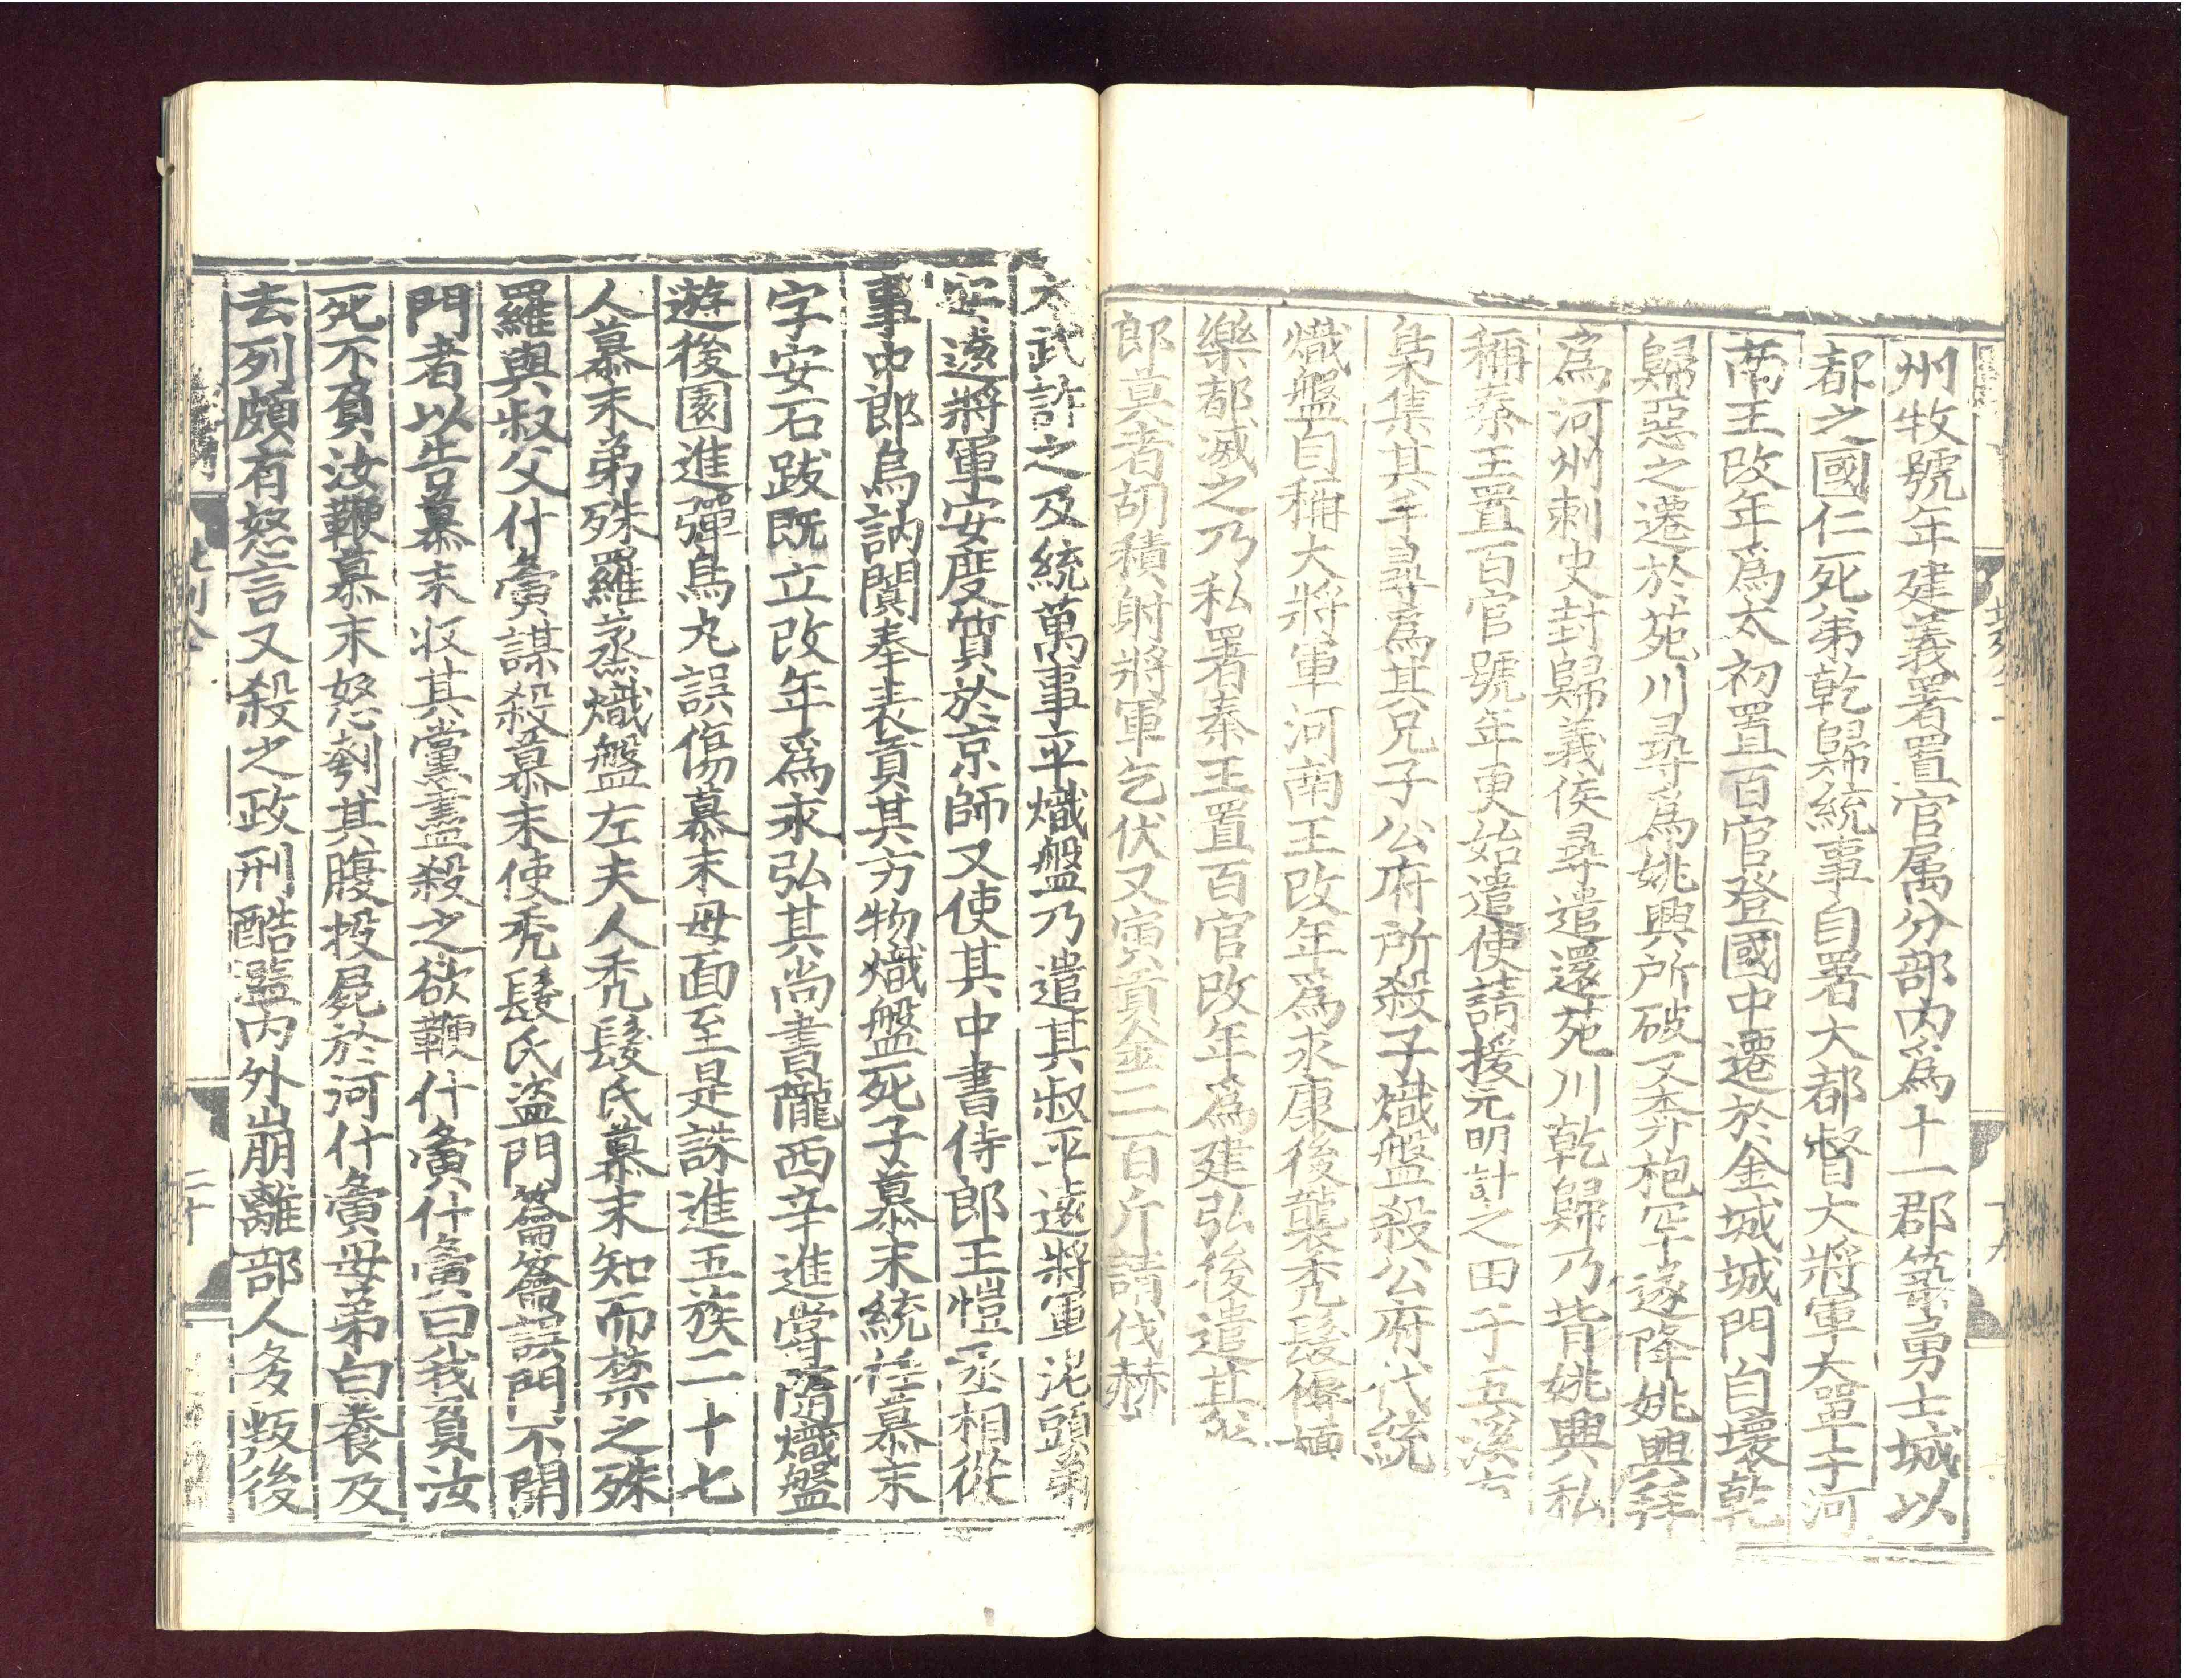 州牧號年建義署置官属分部内爲十一郡築勇士城以
都之國仁死弟乾歸統事自署大都督大將軍大單于河
南王改年爲太初置百官登國中遷於金城城門自壞乾
歸惡之遷於苑川尋爲姚興所破又奔枹罕遂降姚興拜
爲河州刺史封歸義侯尋遣還苑川乾歸乃背姚興私
稱秦王置百官號年更始遣使請援元明許之田于五溪有
梟集其手尋爲其兄子公府所殺子熾盤殺公府代統
熾盤自稱大將軍河南王改年爲永康後襲禿髮傉檀
樂都滅之乃私署秦王置百官改年爲建弘後遣其
郎莫者胡積射將軍乞伏又寅貢金二百斤請伐赫
太武許之及統萬事平熾盤乃遣其叔平遠將軍泥頭弟
安遠將軍安度質於京師又使其中書侍郎王愷丞相從
事中郎烏訥闐奉表貢其方物熾盤死子慕末統任慕末
字安石跋既立改年爲永弘其尚書隴西辛進嘗隨熾盤
遊後園進彈鳥丸誤傷慕末母面至是誅進五族二十七
人慕末弟殊羅蒸熾盤左夫人禿髮氏慕末知而禁之殊
羅與叔父什夤謀殺慕末使禿髮氏盜門籥籥誤門不開
門者以告慕末收其黨盡殺之欲鞭什夤什夤曰我負汝
死不負汝鞭慕末怒刳其腹投屍於河什夤母弟白養及
去列頗有怒言又殺之政刑酷濫内外崩離部人多叛後
二十